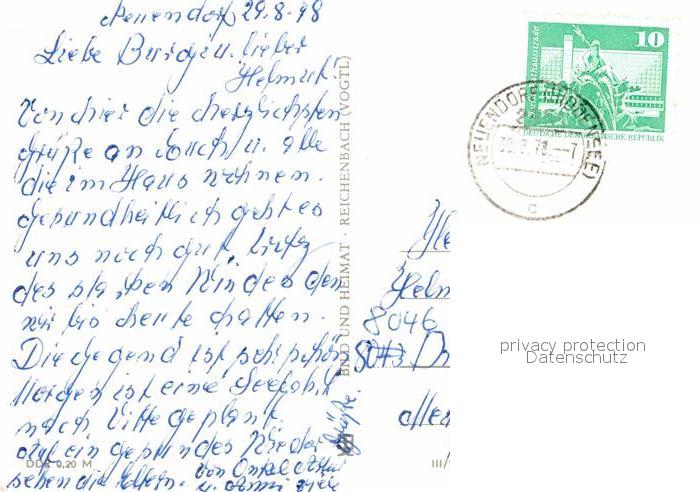 Neuendorf 29.8.78
Liebe Burgin. lieber
Helmut!
Von hier die herzlichsten
Grüße an Euch u. alle
die im Haus wohnen.
Gesundheitlich geht es
uns noch gut, trotz
des starken Windes den
wir bis heute hatten.
Die Gegend ist sehr schön
Morgen ist eine Seefahrt
nach Vitte geplant.
Auf ein gesundes Wieder
sehen die
von Onkel
u.
Grüße.
BILD UND HEIMAT · REICHENBACH (VOGTL)
DDR 0,20 M
III/
Helm
8046
8043 Dr
10
DEUTSCHE DEMOKRATISCHE REPUBLIK
NEUENDORF (HIDDENSEE)
30.8.78 - 7
c
privacy protection
Datenschutz